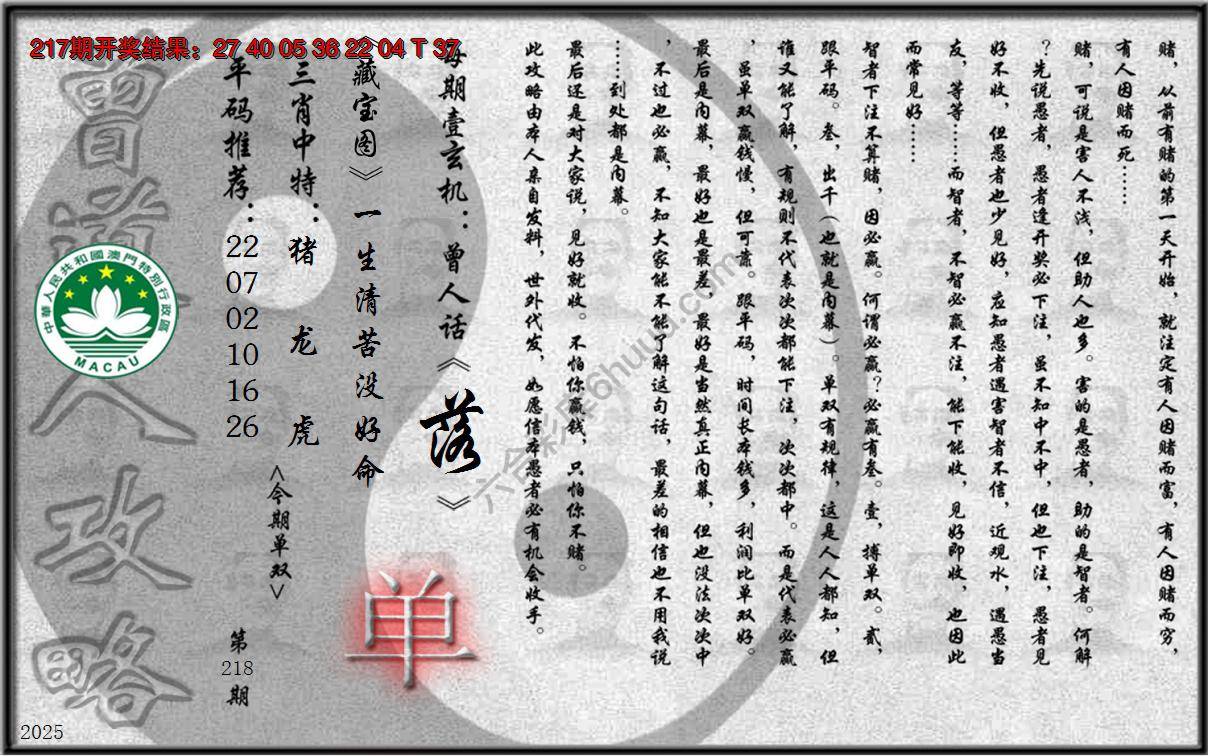 217期开奖结果：27 40 05 36 22 04 T 37
赌，从前有赌的第一天开始，就注定有人因赌而富，有人因赌而穷，
有人因赌而死……
赌，可说是害人不浅，但助人也多。害的是愚者，助的是智者。何解
？先说愚者，愚者逢开奖必下注，虽不知中不中，但也下注，愚者见
好不收，但愚者也少见好，应知愚者遇害智者不信，近观水，遇愚当
友，等等……而智者，不智必赢不注，能下能收，见好即收，也因此
而常见好……
智者下注不算赌，因必赢。何谓必赢？必赢有叁。壹，搏单双。贰，
跟平码。叁，出千（也就是内幕）。单双有规律，这是人人都知，但
谁又能了解，有规则不代表次次都能下注，次次都中。而是代表必赢
，虽单双赢钱慢，但可靠。跟平码，时间长本钱多，利润比单双好。
最后是内幕，最好也是最差，最好是当然真正内幕，但也没法次次中
，不过也必赢，不知大家能不能了解这句话，最差的相信也不用我说
……到处都是内幕。
最后还是对大家说，见好就收。不怕你赢钱，只怕你不赌。
此攻略由本人亲自发料，世外代发，如愿信本愚者必有机会收手。
每期壹玄机：曾人话《落》
《藏宝图》一生清苦没好命
三肖中特：猪 龙 虎
平码推荐：22 07 02 10 16 26
<今期单双>
单
第218期
曾道人攻略
中華人民共和國澳門特別行政區
MACAU
六合彩库6huuu.com
2025